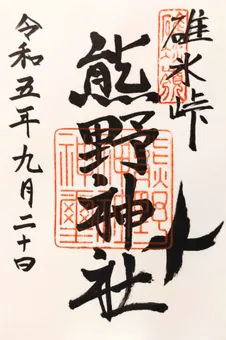 碓氷峠
熊野神社
令和五年九月二十日